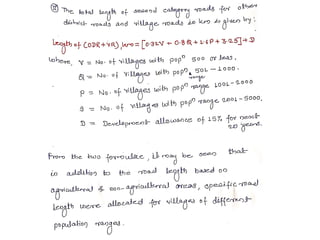 ② The total length of second category roads for other
district roads and village roads in km is given by:
Length of (ODR+VR), km = [0.32V + 0.8Q + 1.6P + 3.2S] + D
Where, V = No. of villages with popⁿ 500 or less,
Q = No. of villages with popⁿ range 501 - 1000.
P = No. of villages with popⁿ range 1001 - 2000
S = No. of villages with popⁿ range 2001 - 5000,
D = Development allowance of 15% for next
20 years.
From the two formulae, it may be seen that
in addition to the road length based on
agricultural & non-agricultural areas, specific road
length were allocated for villages of different
population ranges.